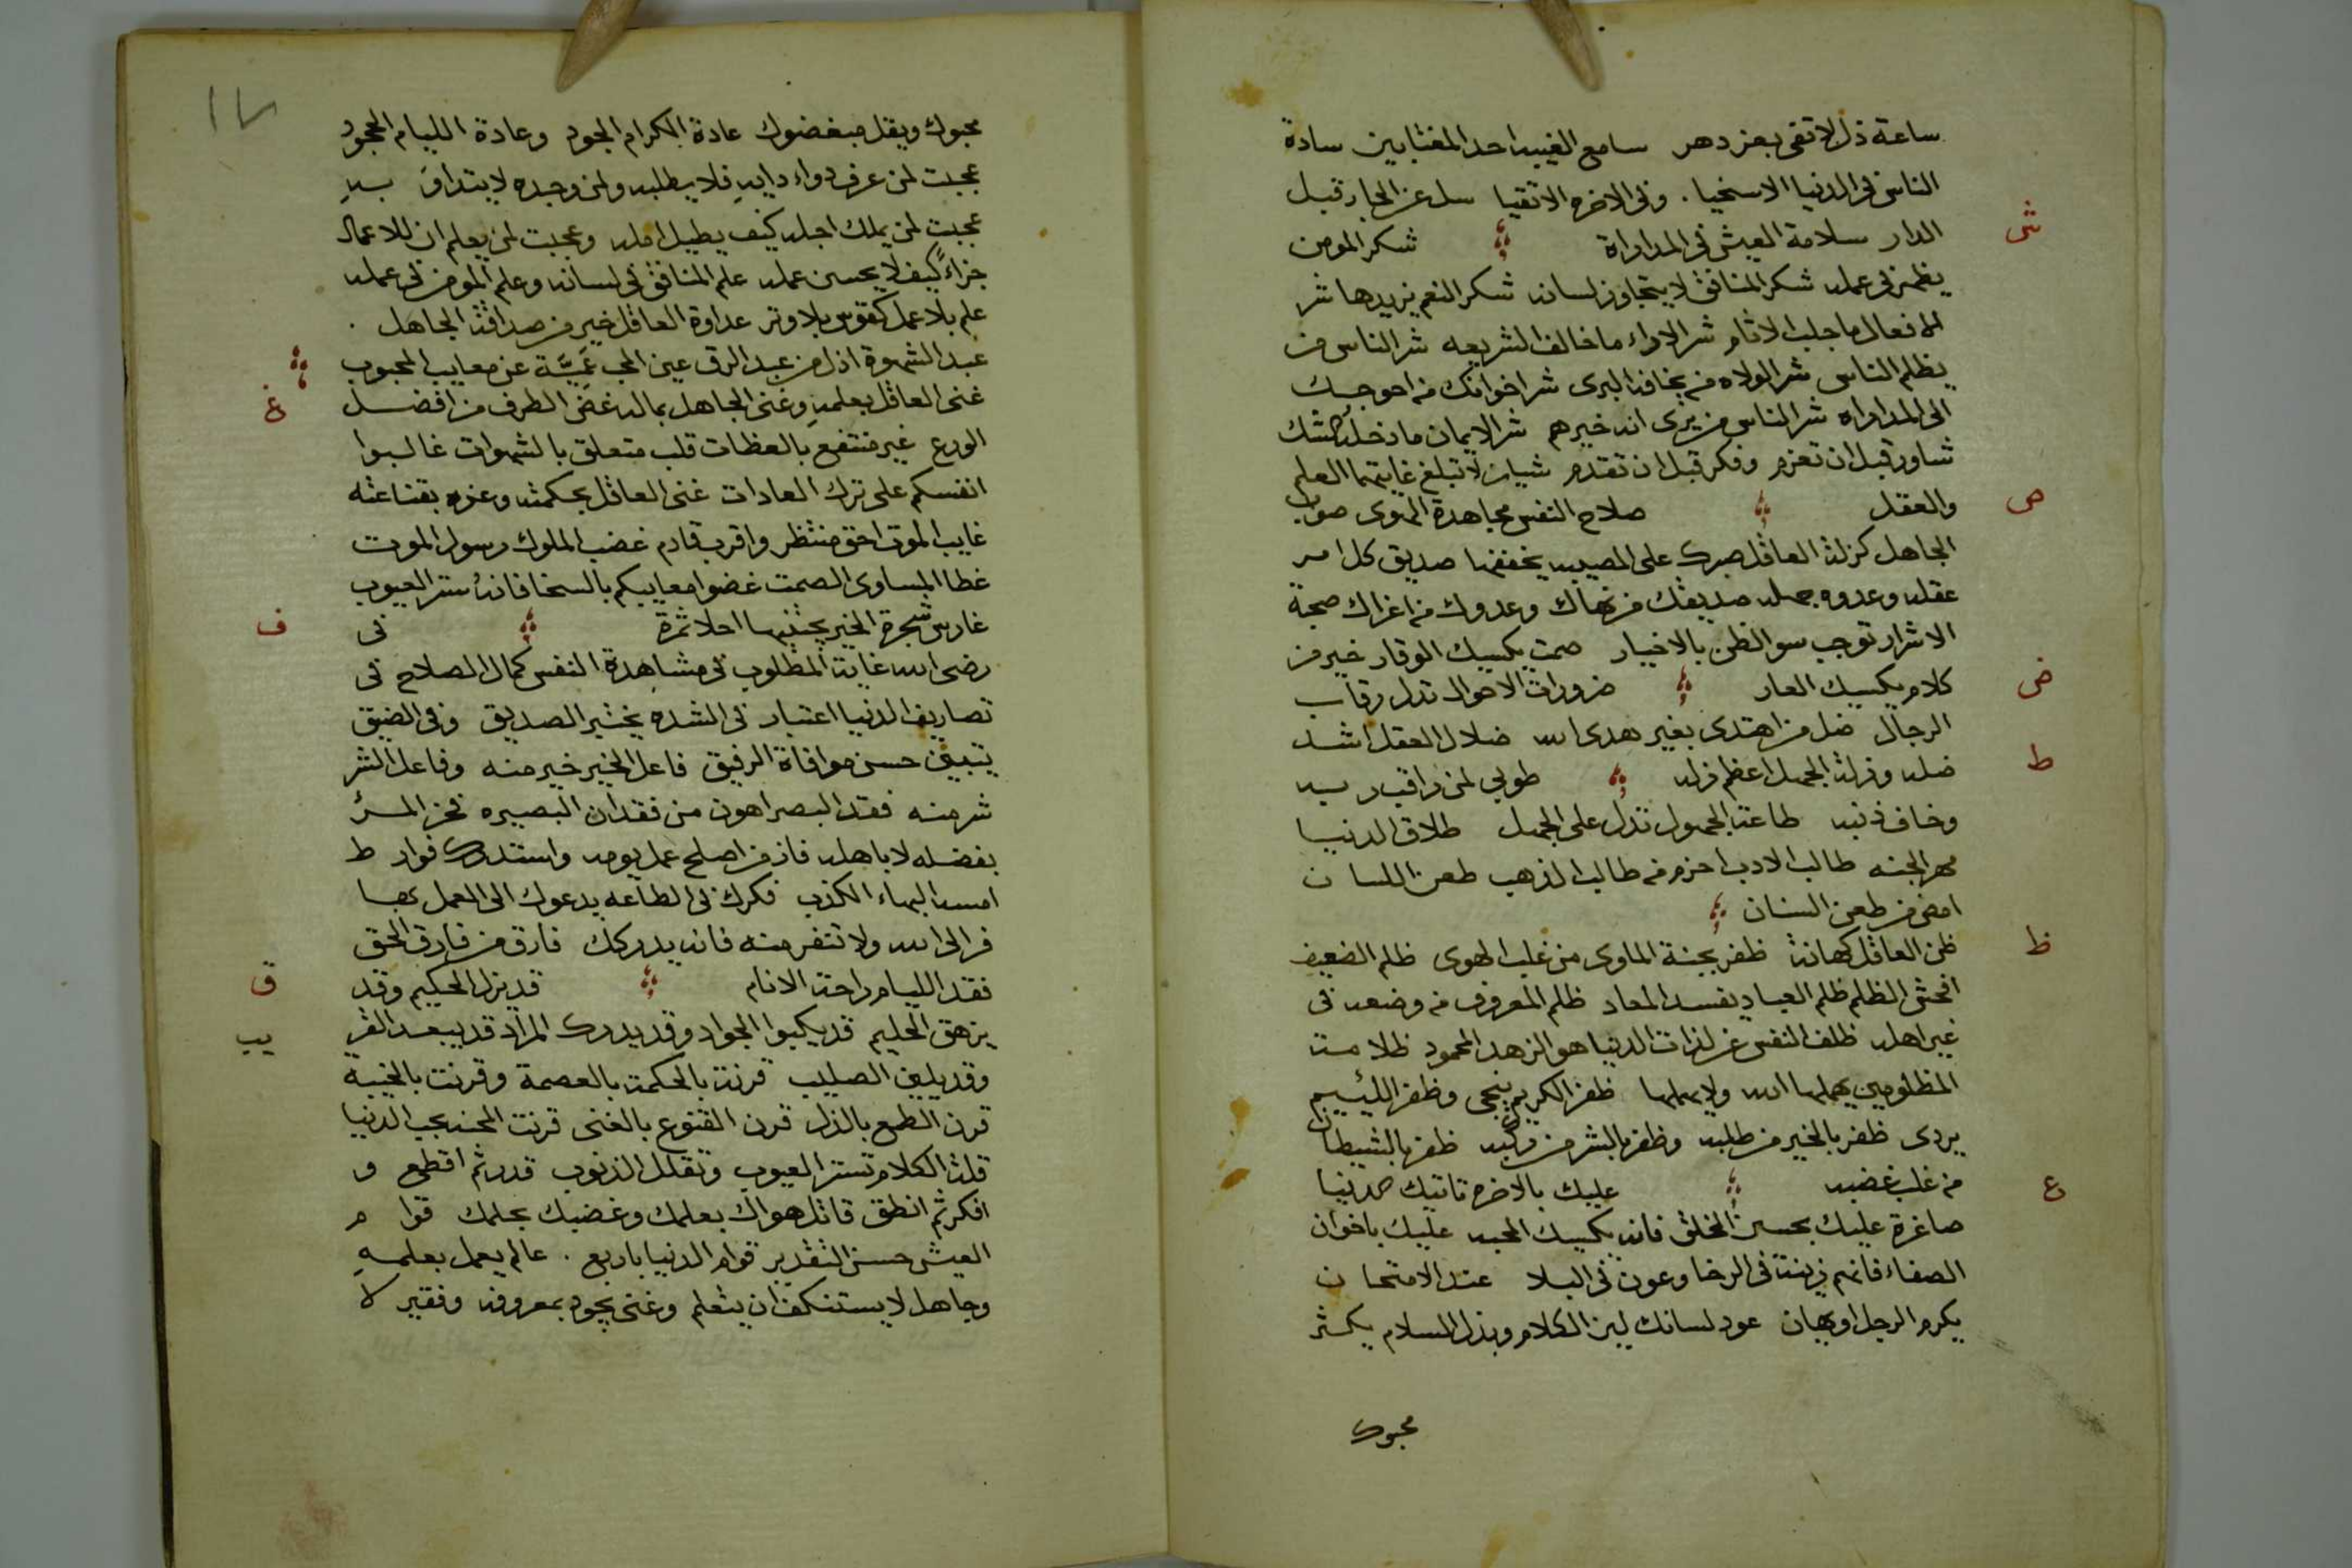 ساعة ذل لا تفى بعز دهر سامع الغيبه احد المغتابين سادة
الناس فى الدنيا الاسخيا . وفى الاخره الاتقيا سل عن الجار قبل
ش
الدار سلامة العيش فى المداراة شكر المومن
يظهر فى عمله شكر المنافق لا يتجاوز لسانه شكر النعم يزيدها شر
الافعال ما جلب الاثام شر الاراء ما خالف الشريعه شر الناس من
يظلم الناس شر الولاه من يخافه البرى شر اخوانك من احوجك
الى المداراه شر الناس من يرى انه خيرهم شر الايمان ما دخله الشك
شاور قبل ان تعزم وفكر قبل ان تقدم شيان لا تبلغ غايتهما العلم
ص
والعقل صلاح النفس مجاهدة الهوى صواب
الجاهل كزلة العاقل صبرك على المصيبه يخففها صديق كل امر
عقله وعدوه جهله صديقك من نهاك وعدوك من اغراك صحبة
الاشرار توجب سو الظن بالاخيار صمت يكسبك الوقار خير من
ض
كلام يكسبك العار ضرورات الاحوال تذل رقاب
الرجال ضل من اهتدى بغير هدى الله ضلال العقل اشد
ط
ضله وزلة الجهل اعظم زله طوبى لمن راقب ربه
وخاف ذنبه طاعة الجهول تدل على الجهل طلاق الدنيا
مهر الجنه طالب الادب احزم من طالب الذهب طعن اللسان
امضى من طعن السنان
ظ
ظن العاقل كهانة ظفر بجنة الماوى من غلب الهوى ظلم الضعيف
افحش الظلم ظلم العباد يفسد المعاد ظلم المعروف من وضعه فى
غير اهله ظلف النفس عن لذات الدنيا هو الزهد المحمود ظلامة
المظلومين يمهلها الله ولا يهملها ظفر الكريم ينجى وظفر اللئيم
يردى ظفر بالخير من طلبه وظفر بالشر من ركبه ظفر بالشيطان
ع
من غلب غضبه عليك بالاخره تاتيك الدنيا
صاغرة عليك بحسن الخلق فانه يكسبك المحبه عليك باخوان
الصفاء فانهم زينة فى الرخا وعون فى البلا عند الامتحان
يكرم الرجل او يهان عود لسانك لين الكلام وبذل السلام يكثر
محبوك
١٧
محبوك ويقل مبغضوك عادة الكرام الجود وعادة الليام الجحود
عجبت لمن عرف دواء دايه فلا يطلبه ولمن وجده لا يتداوَ به
عجبت لمن يملك اجله كيف يطيل امله وعجبت لمن يعلم ان للاعمال
جزاءً كيف لا يحسن عمله علم المنافق فى لسانه وعلم المومن فى عمله
علم بلا عمل كقوس بلا وتر عداوة العاقل خير من صداقة الجاهل .
عبد الشهوة اذل من عبد الرق عين المحب عَمِيَّة عن معايب المحبوب
غ
غنى العاقل بعلمه وغنى الجاهل بماله غض الطرف من افضل
الورع غير منتفع بالعظات قلب متعلق بالشهوات غالبوا
انفسكم على ترك العادات غنى العاقل بحكمته وعزه بقناعته
غايب الموت احق منتظر واقرب قادم غضب الملوك رسول الموت
غطا المساوى الصمت غضوا معايبكم بالسخا فانه ستر العيوب
ف
غارس شجرة الخير يجتنيها احلا ثمرة فى
رضى الله غاية المطلوب فى مشاهدة النفس كمال الصلاح فى
تصاريف الدنيا اعتبار فى الشده يختبر الصديق وفى الضيق
يتبين حسن موافاة الرفيق فاعل الخير خير منه وفاعل الشر
شر منه فقد البصر اهون من فقدان البصيره فخر المرء
بفضله لا باهله فاز من اصلح عمل يومه واستدرك فوارط
امسه البهاء الكذب فكرك فى الطاعه يدعوك الى العمل بها
فر الى الله ولا تتفر منه فانه يدركك فارق من فارق الحق
ق
فقد الليام راحة الانام قد يزل الحكيم وقد
يب
يزهق الحليم قد يكبوا الجواد وقد يدرك المراد قد يبعد القر
وقد يلين الصليب قرنت الحكمة بالعصمة وقرنت بالخيبة
قرن الطمع بالذل قرن القنوع بالغنى قرنت المحنه بحب الدنيا
قلة الكلام تستر العيوب وتقلل الذنوب قدر ثم اقطع و
افكر ثم انطق قاتل هواك بعلمك وغضبك بحلمك قوام
العيش حسن التقدير قوام الدنيا باربع . عالم يعمل بعلمه
وجاهل لا يستنكف ان يتعلم وغنى يجود بمعروفه وفقير لا